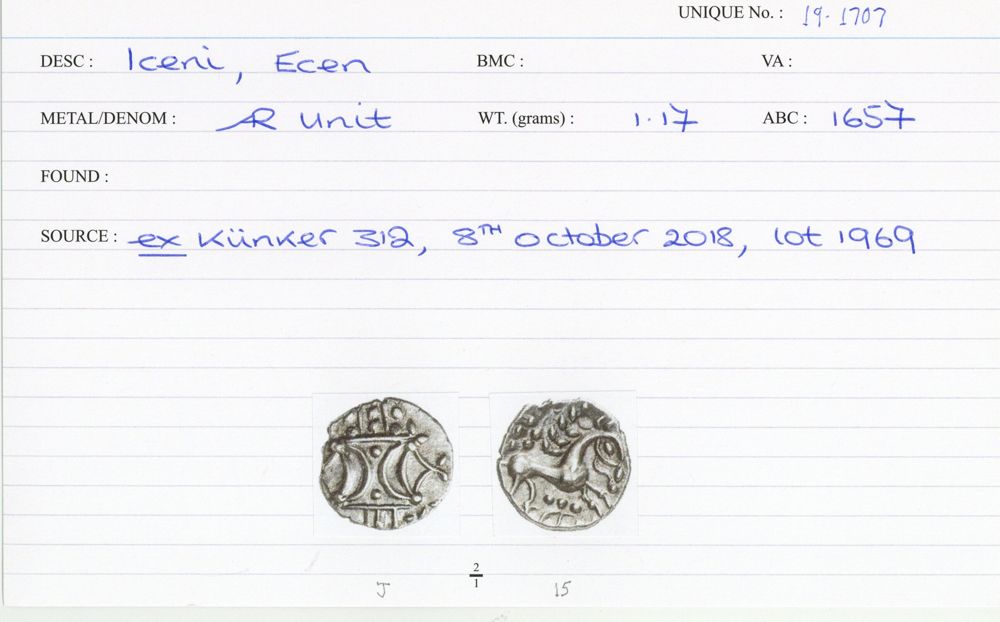 UNIQUE No. : 19-1707
DESC : Iceni, Ecen BMC : VA :
METAL/DENOM : AR unit WT. (grams) : 1.17 ABC : 1657
FOUND :
SOURCE : ex Künker 312, 8TH October 2018, lot 1969
2
1
J 15